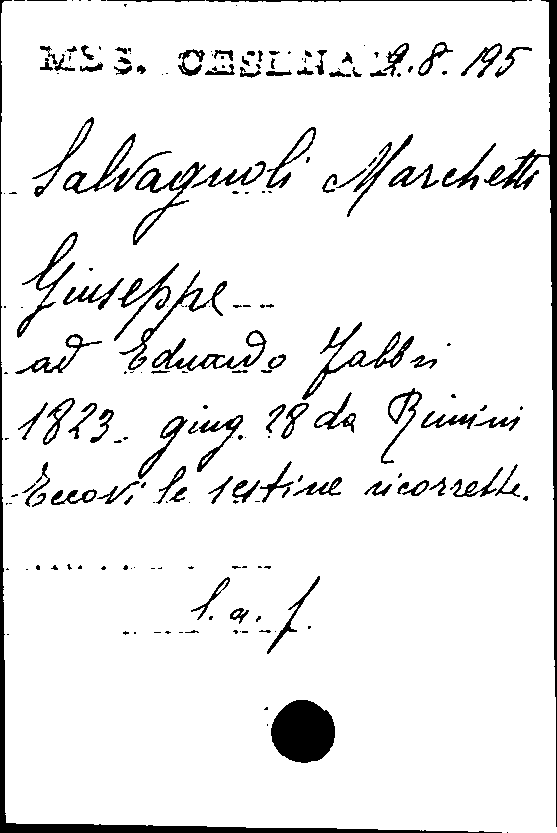 MSS. CESENA 2.8.195
Salvagnoli Marchetti
Giuseppe
ad Eduardo Fabbri
1823. giug. 28 da Rimini
Eccovi le sestine ricorrette.
l. a. f.